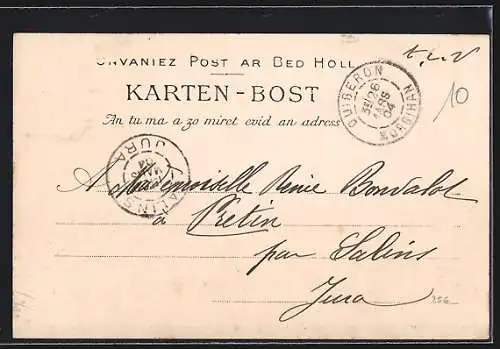 UNVANIEZ POST AR BED HOLL
KARTEN-BOST
An tu ma a zo miret evid an adress
QUIBERON
26
MARS
04
MORBIHAN
10
SALINS
JURA
04
A Mademoiselle Renée Bondalot
à Pretin
par Salins
Jura